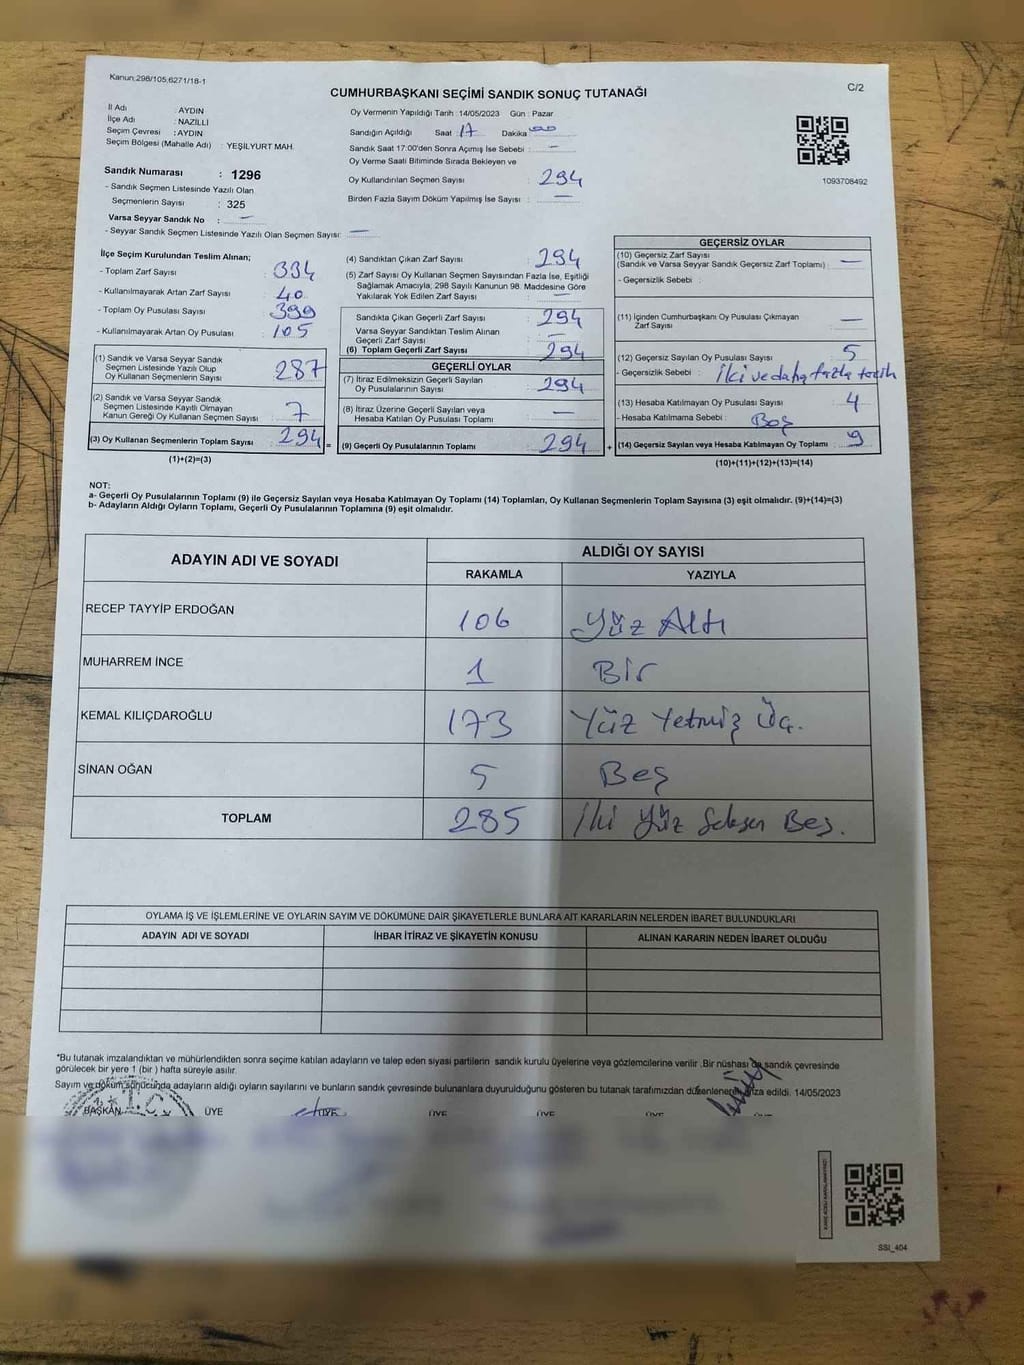 Kanun:298/105,6271/18-1
C/2
CUMHURBAŞKANI SEÇİMİ SANDIK SONUÇ TUTANAĞI
İl Adı : AYDIN
İlçe Adı : NAZİLLİ
Seçim Çevresi : AYDIN
Seçim Bölgesi (Mahalle Adı) : YEŞİLYURT MAH.
Sandık Numarası : 1296
- Sandık Seçmen Listesinde Yazılı Olan
Seçmenlerin Sayısı : 325
Varsa Seyyar Sandık No : —
- Seyyar Sandık Seçmen Listesinde Yazılı Olan Seçmen Sayısı: —
Oy Vermenin Yapıldığı Tarih : 14/05/2023 Gün : Pazar
Sandığın Açıldığı Saat : 17 Dakika : 00
Sandık Saat 17:00'den Sonra Açımış İse Sebebi : —
Oy Verme Saati Bitiminde Sırada Bekleyen ve
Oy Kullandırılan Seçmen Sayısı : 294
Birden Fazla Sayım Döküm Yapılmış İse Sayısı : —
1093708492
İlçe Seçim Kurulundan Teslim Alınan;
- Toplam Zarf Sayısı : 334
- Kullanılmayarak Artan Zarf Sayısı : 40
- Toplam Oy Pusulası Sayısı : 399
- Kullanılmayarak Artan Oy Pusulası : 105
(1) Sandık ve Varsa Seyyar Sandık
Seçmen Listesinde Yazılı Olup
Oy Kullanan Seçmenlerin Sayısı : 287
(2) Sandık ve Varsa Seyyar Sandık
Seçmen Listesinde Kayıtlı Olmayan
Kanun Gereği Oy Kullanan Seçmen Sayısı : 7
(3) Oy Kullanan Seçmenlerin Toplam Sayısı : 294 =
(1)+(2)=(3)
(4) Sandıktan Çıkan Zarf Sayısı : 294
(5) Zarf Sayısı Oy Kullanan Seçmen Sayısından Fazla İse, Eşitliği
Sağlamak Amacıyla, 298 Sayılı Kanunun 98. Maddesine Göre
Yakılarak Yok Edilen Zarf Sayısı : —
Sandıkta Çıkan Geçerli Zarf Sayısı : 294
Varsa Seyyar Sandıktan Teslim Alınan
Geçerli Zarf Sayısı : —
(6) Toplam Geçerli Zarf Sayısı : 294
GEÇERLİ OYLAR
(7) İtiraz Edilmeksizin Geçerli Sayılan
Oy Pusulalarının Sayısı : 294
(8) İtiraz Üzerine Geçerli Sayılan veya
Hesaba Katılan Oy Pusulası Toplamı : —
(9) Geçerli Oy Pusulalarının Toplamı : 294 +
GEÇERSİZ OYLAR
(10) Geçersiz Zarf Sayısı
(Sandık ve Varsa Seyyar Sandık Geçersiz Zarf Toplamı) : —
- Geçersizlik Sebebi :
(11) İçinden Cumhurbaşkanı Oy Pusulası Çıkmayan
Zarf Sayısı : —
(12) Geçersiz Sayılan Oy Pusulası Sayısı : 5
- Geçersizlik Sebebi : İki ve daha fazla tercih
(13) Hesaba Katılmayan Oy Pusulası Sayısı : 4
- Hesaba Katılmama Sebebi : Boş
(14) Geçersiz Sayılan veya Hesaba Katılmayan Oy Toplamı : 9
(10)+(11)+(12)+(13)=(14)
NOT:
a- Geçerli Oy Pusulalarının Toplamı (9) ile Geçersiz Sayılan veya Hesaba Katılmayan Oy Toplamı (14) Toplamları, Oy Kullanan Seçmenlerin Toplam Sayısına (3) eşit olmalıdır. (9)+(14)=(3)
b- Adayların Aldığı Oyların Toplamı, Geçerli Oy Pusulalarının Toplamına (9) eşit olmalıdır.
ADAYIN ADI VE SOYADI
ALDIĞI OY SAYISI
RAKAMLA YAZIYLA
RECEP TAYYİP ERDOĞAN 106 Yüz Altı
MUHARREM İNCE 1 Bir
KEMAL KILIÇDAROĞLU 173 Yüz Yetmiş Üç.
SİNAN OĞAN 5 Beş
TOPLAM 285 İki Yüz Seksen Beş.
OYLAMA İŞ VE İŞLEMLERİNE VE OYLARIN SAYIM VE DÖKÜMÜNE DAİR ŞİKAYETLERLE BUNLARA AİT KARARLARIN NELERDEN İBARET BULUNDUKLARI
ADAYIN ADI VE SOYADI İHBAR İTİRAZ VE ŞİKAYETİN KONUSU ALINAN KARARIN NEDEN İBARET OLDUĞU
*Bu tutanak imzalandıktan ve mühürlendikten sonra seçime katılan adayların ve talep eden siyasi partilerin sandık kurulu üyelerine veya gözlemcilerine verilir .Bir nüshası da sandık çevresinde
görülecek bir yere 1 (bir ) hafta süreyle asılır.
Sayım ve döküm sonucunda adayların aldığı oyların sayılarını ve bunların sandık çevresinde bulunanlara duyurulduğunu gösteren bu tutanak tarafımızdan düzenlenerek imza edildi. 14/05/2023
T.C.
BAŞKAN ÜYE ÜYE ÜYE ÜYE ÜYE ÜYE
SSI_404